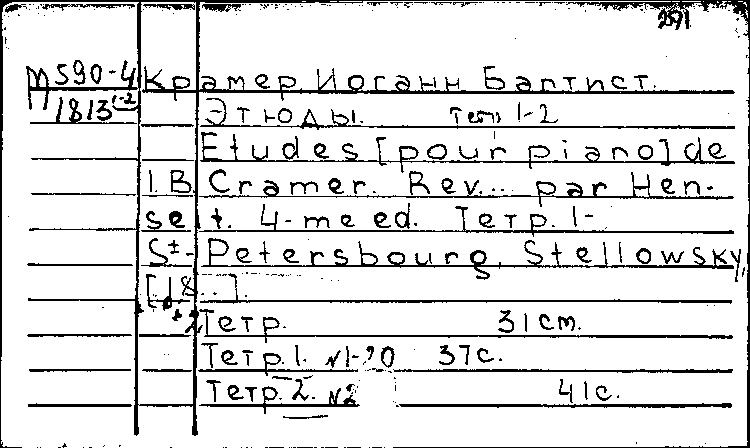 2591
М590-4 Крамер, Иоганн Баптист.
1813 1-2 Этюды. Тетр. 1-2
Etudes [pour piano] de
I. B. Cramer. Rev... par Hen-
selt. 4-me ed. Тетр. 1-
St-Petersbourg, Stellowsky,
[18...].
2 Тетр. 31 см.
Тетр. 1. №1-20 37 с.
Тетр. 2. №2 41 с.